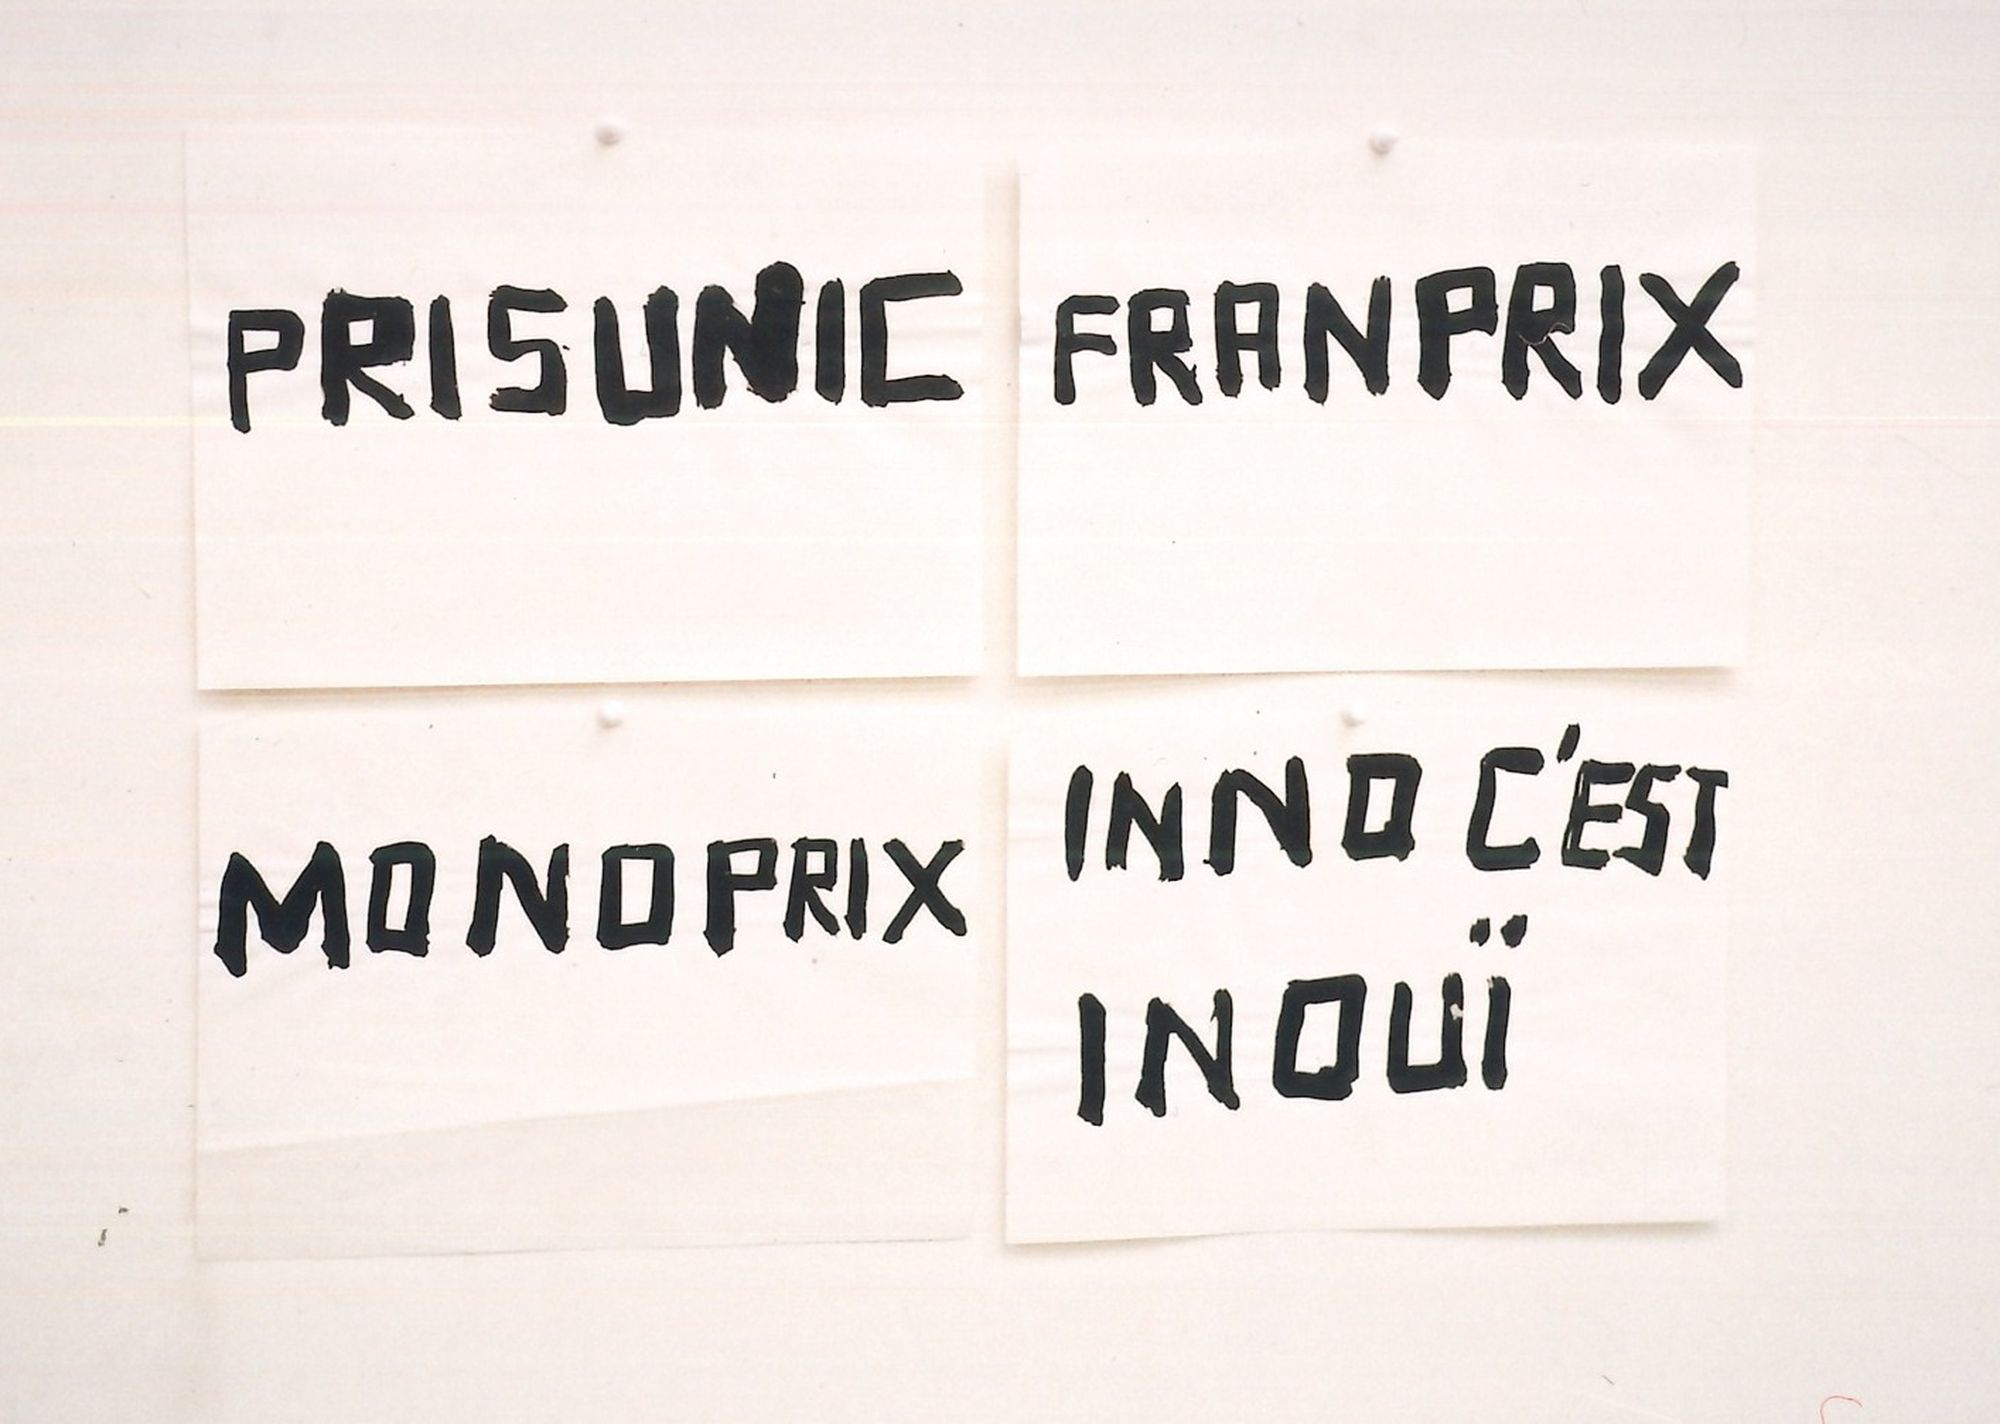 PRISUNIC
FRANPRIX
MONOPRIX
INNO C'EST
INOUÏ